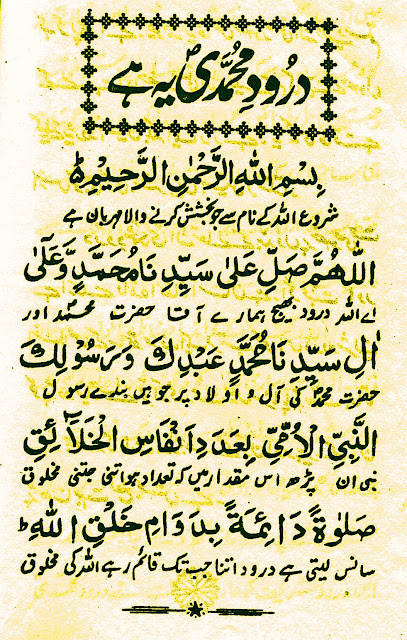 درُودِ محمّدیؐ یہ ہے
بِسْمِ اللهِ الرَّحْمٰنِ الرَّحِيْمِ ط
شروع اللہ کے نام سے جو بخشش کرنے والا مہربان ہے
اَللّٰهُمَّ صَلِّ عَلىٰ سَيِّدِ نَا مُحَمَّدٍ وَّعَلىٰ
اے اللہ درود بھیج ہمارے آقا حضرت محمدؐ اور
اٰلِ سَيِّدِ نَا مُحَمَّدٍ عَبْدِكَ وَرَسُوْلِكَ
حضرت محمدؐ کی آل و اولاد پر جو ہیں بندے رسول
النَّبِيِّ الْاُمِّيِّ بِعَدَدِ اَنْفَاسِ الْخَلَآئِقِ
نبی ان پڑھ اس مقدار میں کہ تعداد ہو اتنی جتنی مخلوق
صَلٰوةً دَائِمَةً بِدَوَامِ خَلْقِ اللهِ ط
سانس لیتی ہے درود اتنا جب تک قائم رہے اللہ کی مخلوق